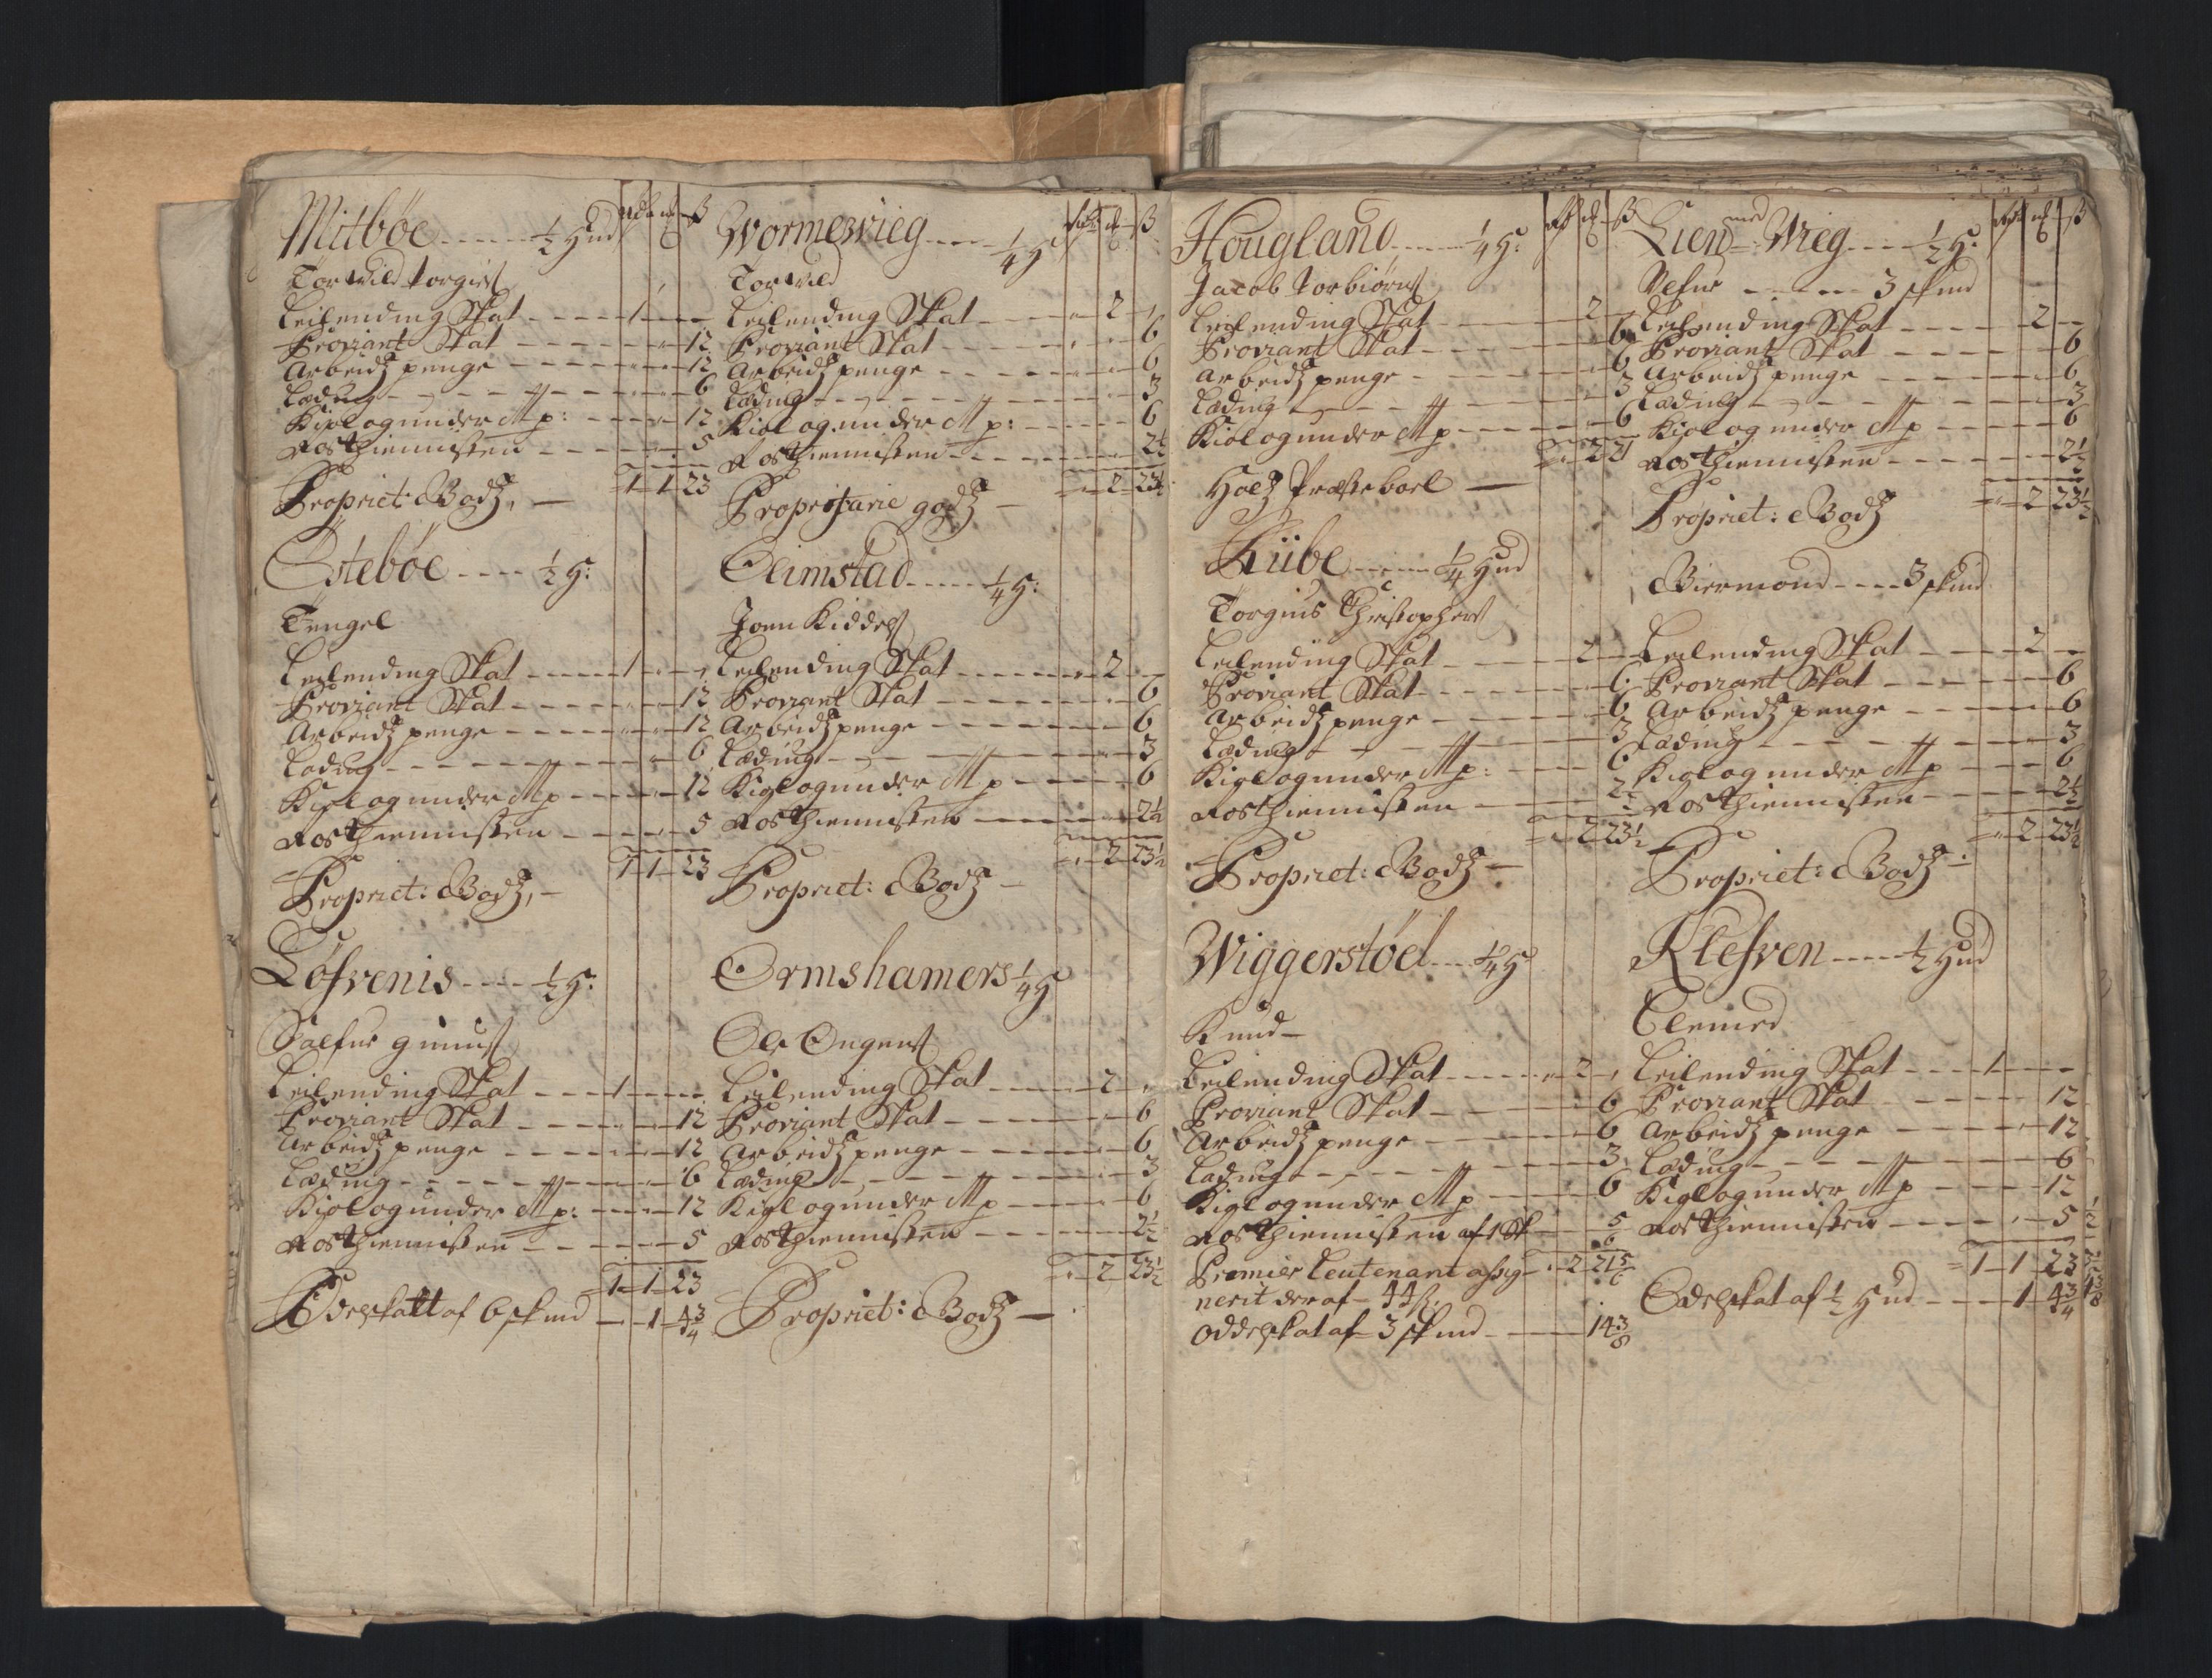 Mitbøe ----- ½ Hud Rdr ort ß
Torwild Torgies
Leilending Skat ---- 1 --
Proviant Skat ---- 12
Arbeidz penge ---- 12
Læding ---- 6
Kiøl og under Mp: ---- 12
Rosthiennisten ---- 5
1 - 1 - 23
Propriet: Godz, —
Østebøe ---- ½ H:
Tengel
Leilending Skat ---- 1 --
Proviant Skat ---- 12
Arbeidz penge ---- 12
Læding ---- 6
Kiøl og under Mp ---- 12
Rosthiennisten ---- 5
1 - 1 - 23
Propriet: Godz, —
Løfvenis ---- ½ H:
Salfue
Leilending Skat ---- 1 --
Proviant Skat ---- 12
Arbeidz penge ---- 12
Læding ---- 6
Kiøl og under Mp: ---- 12
Rosthiennisten ---- 5
1 - 1 - 23
Odelskatt af 6 skind -- 1 - 4¾
Wormewieg ---- ¼ H ort ß
Torwild
Leilending Skat ---- 2 -
Proviant Skat ---- 6
Arbeidz penge ---- 6
Læding ---- 3
Kiøl og under Mp: ---- 6
Rosthiennisten ---- 2½
2 - 23½
Propritarie godz —
Olimstad ---- ¼ H:
Joen Kiddels
Leilending Skat ---- 2 -
Proviant Skat ---- 6
Arbeidz penge ---- 6
Læding ---- 3
Kiøl og under Mp ---- 6
Rosthiennisten ---- 2½
2 - 23½
Propriet: Godz —
Ormshamers ¼ H
Ole
Leilending Skat ---- 2 -
Proviant Skat ---- 6
Arbeidz penge ---- 6
Læding ---- 3
Kiøl og under Mp ---- 6
Rosthiennisten ---- 2½
2 - 23½
Propriet: Godz —
Hougland ---- ¼ H: ort ß
Jacob Torbiørns
Leilending Skat ---- 2
Proviant Skat ---- 6
Arbeidz penge ---- 6
Læding ---- 3
Kiøl og under Mp ---- 6
2 21
Holz Præsteboel —
Kübe ---- ¼ Hud
Torgius Christophers
Leilending Skat ---- 2
Proviant Skat ---- 6
Arbeidz penge ---- 6
Læding ---- 3
Kiøl og under Mp: ---- 6
Rosthiennisten ---- 2½
2 23½
Propriet: Godz —
Wiggerstøel ---- ¼ H
Knud —
Leilending Skat ---- 2 -
Proviant Skat ---- 6
Arbeidz penge ---- 6
Læding ---- 3
Kiøl og under Mp ---- 6
Rosthiennisten af 1 Sk ---- 5/6
Premier Leutenant assig- 2 - 21 5/6
nerit der af - 44 ß.
Oddelskat af 3 skind ---- 14 3/8
Lien med Wieg ---- ½ H: ort ß
---- 3 skind
Leilending Skat ---- 2 --
Proviant Skat ---- 6
Arbeidz penge ---- 6
Læding ---- 3
Kiøl og under Mp ---- 6
Rosthiennisten ---- 2½
2 - 23½
Propriet: Godz
Giermond ---- 3 skind
Leilending Skat ---- 2 --
Proviant Skat ---- 6
Arbeidz penge ---- 6
Læding ---- 3
Kiøl og under Mp ---- 6
Rosthiennisten ---- 2½
2 - 23½
Propriet: Godz —
Klefven ---- ½ Hud
Clemed
Leilending Skat ---- 1 --
Proviant Skat ---- 12
Arbeidz penge ---- 12
Læding ---- 6
Kiøl og under Mp ---- 12
Rosthiennisten ---- 5
1 - 1 - 23
Odelskat af ½ Hud ---- 1 - 4¾